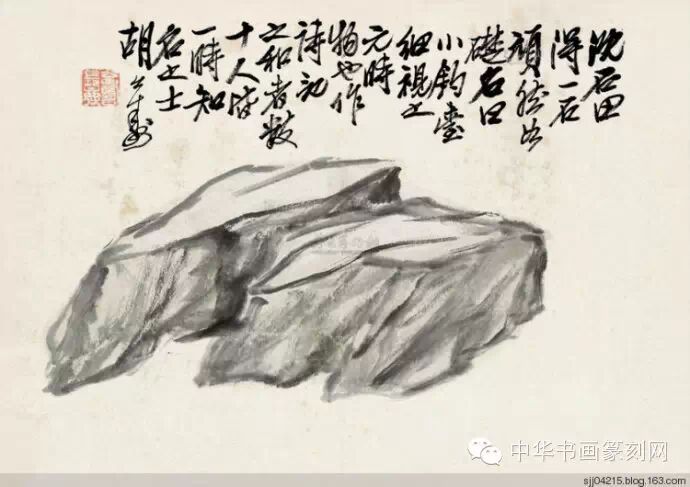 沈石田
得一石
頑然如
礎石曰
小釣臺
細視之
元時
物也作
詩記
之和者数
十人皆
一時知
名之士
胡公寿
中华书画篆刻网
sjj04215.blog.163.com